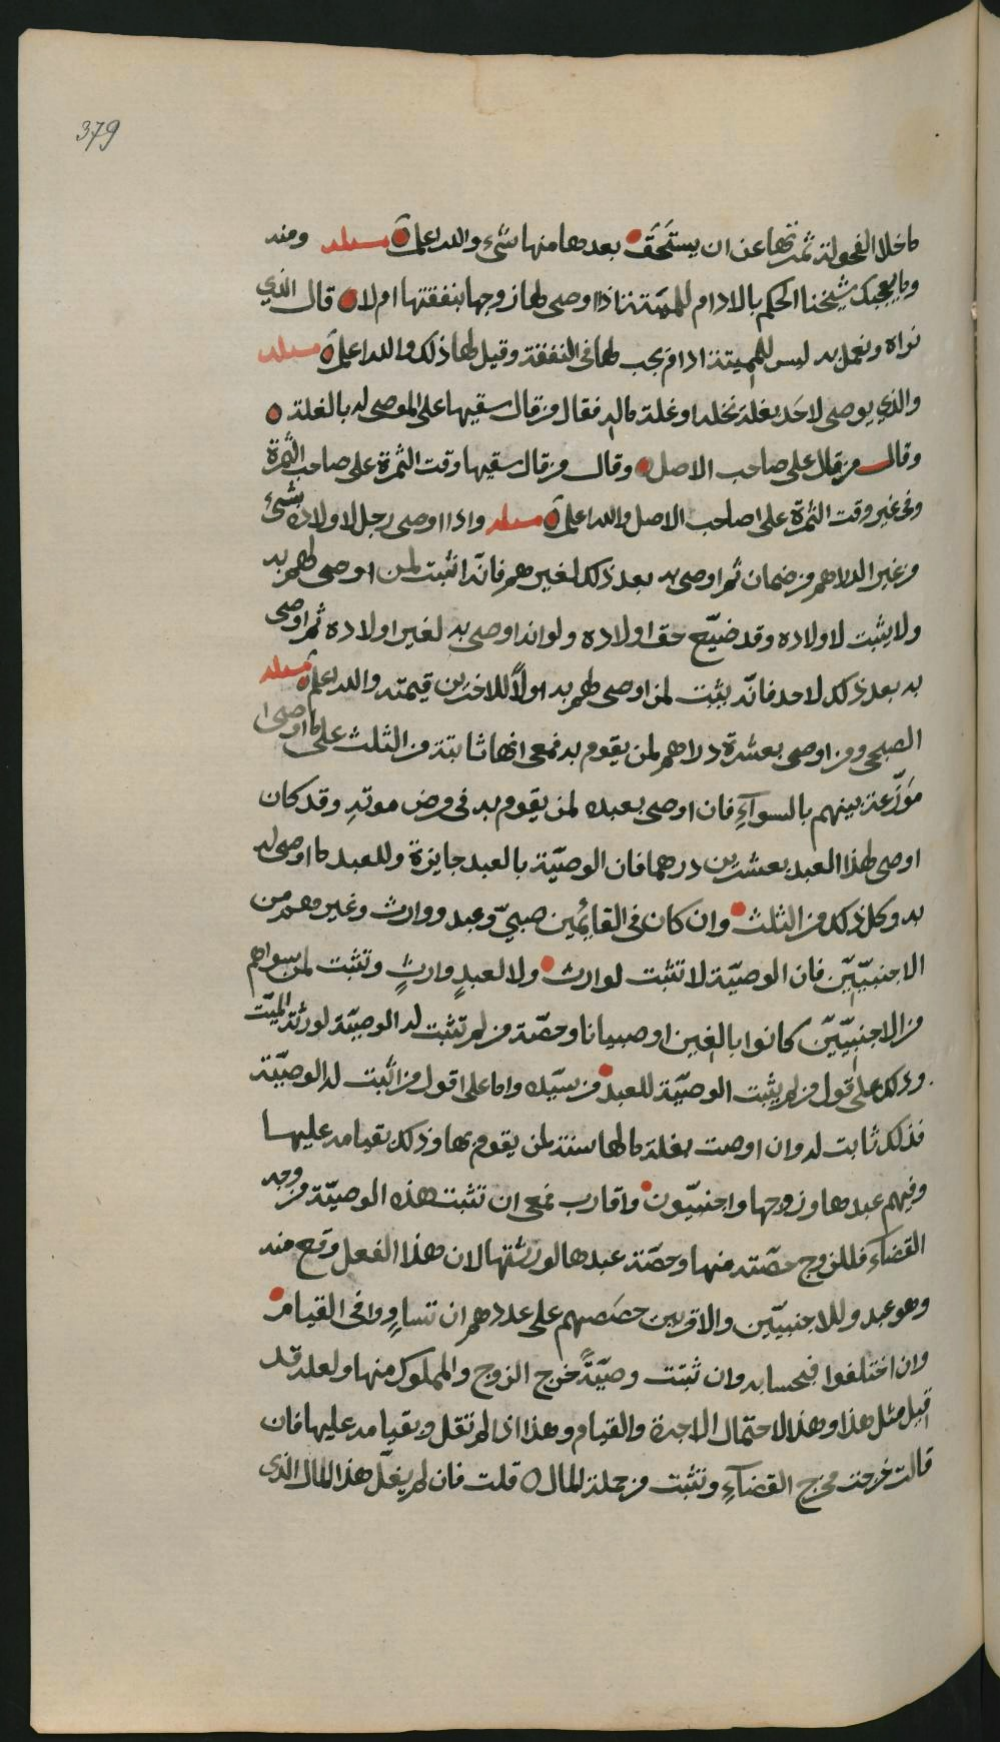 379
ما خلا الفحولة ثمرتها عن ان يستحق بعدها منها شيء والله اعلم مسئلة ومنه
وما يعجبك شيخنا الحكم بالادام للميتة اذا اوصى لها زوجها بنفقتها ام لا قال الذي
نراه ونعمل به ليس للميتة ادام يجب لها في النفقة وقيل لها ذلك والله اعلم مسئلة
والذي يوصي لاحد بغلة نخله او غلة ماله فقال من قال سقيها على الموصى له بالغلة
وقال من قال على صاحب الاصل وقال من قال سقيها وقت الثمرة على صاحب الثمرة
وفي غير وقت الثمرة على صاحب الاصل والله اعلم مسئلة واذا اوصى رجل لاولاده بشيء
من غير الدراهم من ضمان ثم اوصى به بعد ذلك لغيرهم فانه اثبت لمن اوصى لهم به
ولا يثبت لاولاده وقد ضيّع حق اولاده ولو انه اوصى به لغير اولاده ثم اوصى
به بعد ذلك لاحد فانه يثبت لمن اوصى لهم به اولاً للاخرين قيمته والله اعلم مسئلة
الصبحي ومن اوصى بعشرة دراهم لمن يقوم به فمعي انها ثابتة من الثلث على ما اوصى
موزّعة بينهم بالسوآءِ فان اوصى بعبده لمن يقوم به في مرض موته وقد كان
اوصى لهذا العبد بعشرين درهما فان الوصيّة بالعبد جايزة وللعبد ما اوصى له
به وكل ذلك من الثلث وان كان في القايمين صبيّ وعبد ووارث وغيرهم من
الاجنبيّين فان الوصيّة لا تثبت لوارث ولا لعبدٍ وارثٍ وتثبت لمن سواهم
من الاجنبيّين كانوا بالغين او صبيانا وحصّة من لم تثبت له الوصيّة لورثة الميّت
وذلك على قول من لم يثبت الوصيّة للعبد من سيّده واما على قول من اثبت له الوصيّة
فذلك ثابت له وان اوصت بغلة مالها سنة لمن يقوم بها وذلك بقيامه عليها
وفيهم عبدها وزوجها واجنبيّون واقارب فمعي ان تثبت هذه الوصيّة من وجه
القضآء فللزوج حصّته منها وحصّة عبدها لورثتها لان هذا الفعل وقع منه
وهو عبد وللاجنبيّين والاقربين حصصهم على عددهم ان تساووا في القيام
وان اختلفوا فبحسابه وان ثبتت وصيّةً خرج الزوج والمملوك منها ولعله قد
قيل مثل هذا وهذا لاحتمال الاجرة والقيام وهذا اذا لم تقل وبقيامه عليها فان
قالت خرجت مخرج القضآءِ وتثبت من جملة المال قلت فان لم يغلّ هذا المال الذي